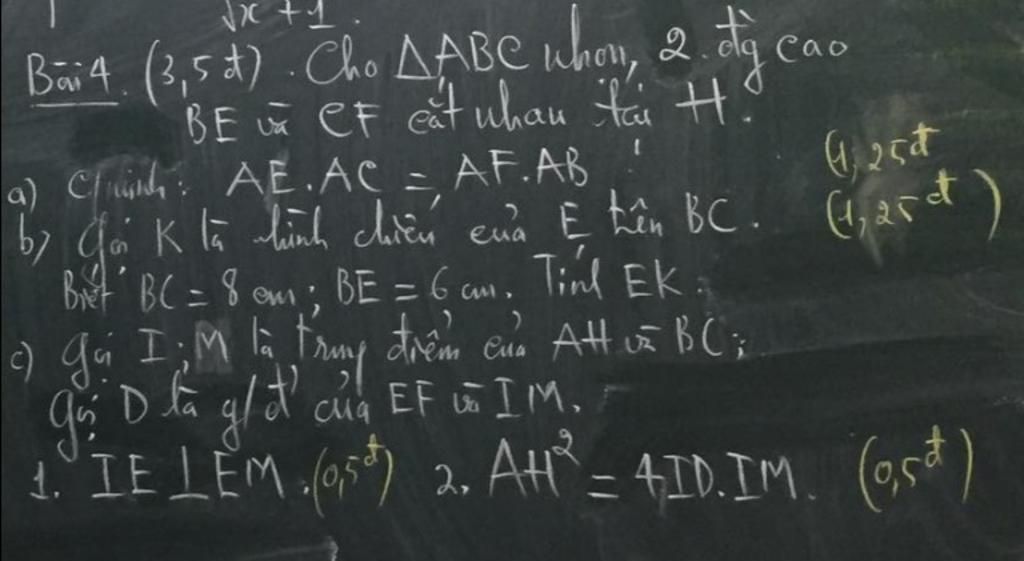 √x + 1.
Bài 4. (3,5 đ). Cho ΔABC nhọn, 2 đg cao
BE và CF cắt nhau tại H.
a) C/minh: AE.AC = AF.AB (1,25đ
b) Gọi K là hình chiếu của E trên BC. (1,25đ)
Biết BC = 8 cm; BE = 6 cm. Tính EK.
c) Gọi I; M là trung điểm của AH và BC;
Gọi D là g/đ' của EF và IM.
1. IE ⊥ EM. (0,5đ) 2, AH² = 4ID.IM. (0,5đ)